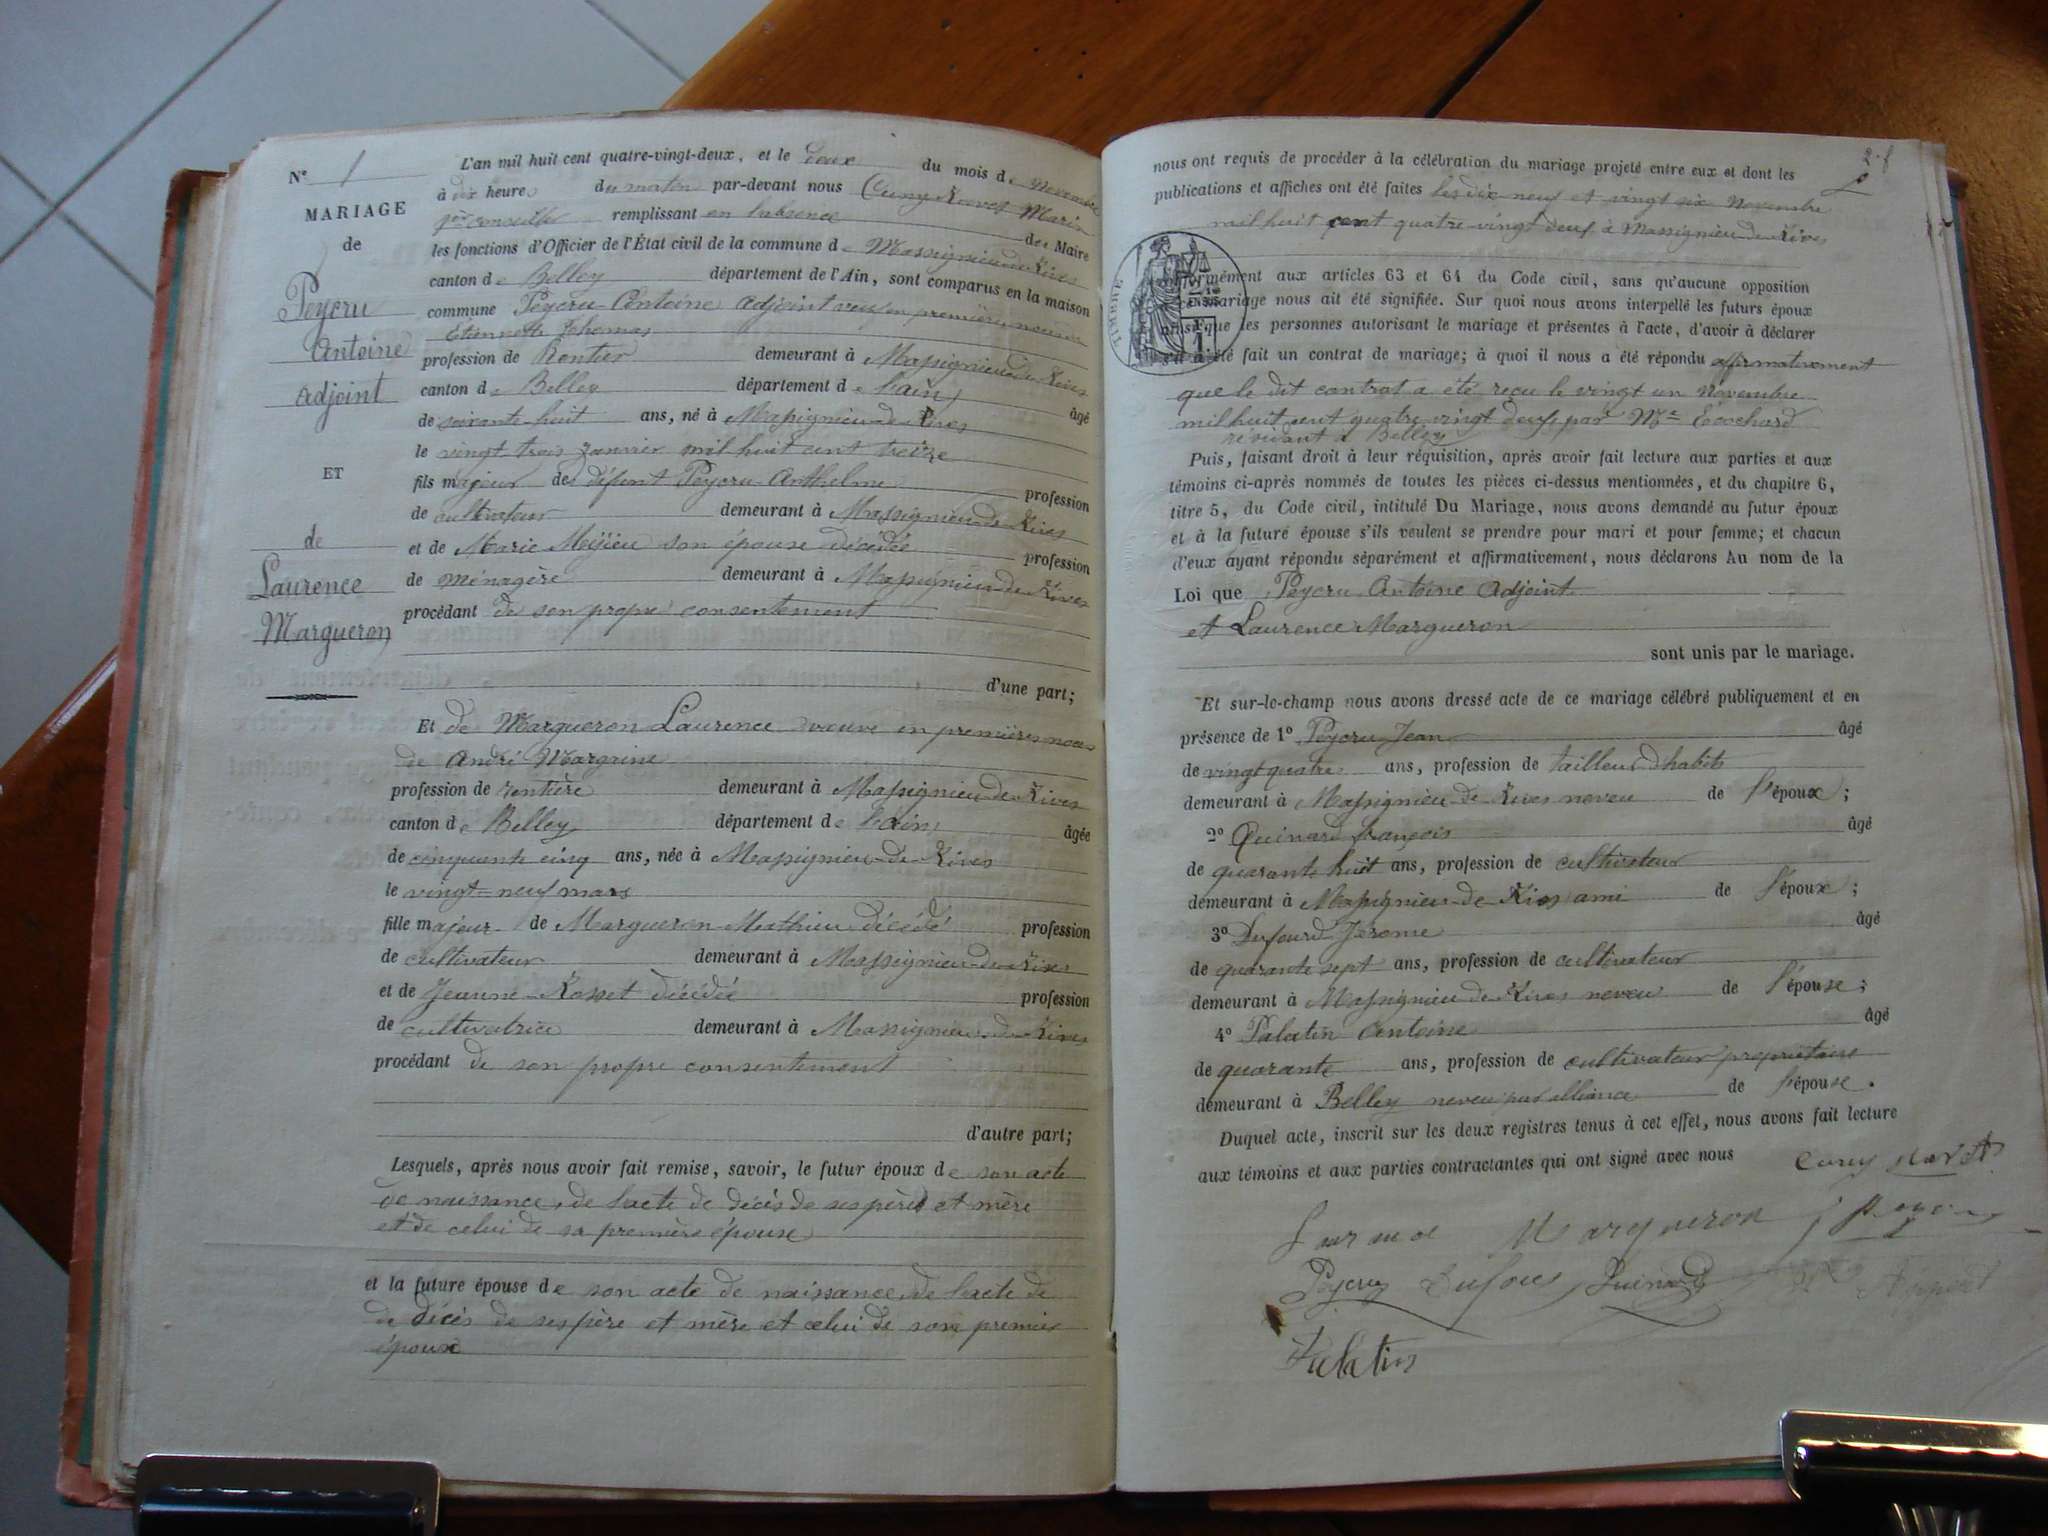 N° 1
MARIAGE
de
Peycru
Antoine
adjoint
ET
de
Laurence
Margueron
L'an mil huit cent quatre-vingt-deux, et le deux du mois de Novembre
à dix heures du matin par-devant nous Cuny Marin
conseiller remplissant en l'absence de Maire
les fonctions d'Officier de l'État civil de la commune de Massignieu-de-Rives
canton de Belley département de l'Ain, sont comparus en la maison
commune Peycru Antoine adjoint veuf en première noces de
Etiennette Thomas
profession de Rentier demeurant à Massignieu de Rives
canton de Belley département de l'ain âgé
de soixante huit ans, né à Massignieu-de-Rives
le vingt trois Janvier mil huit cent treize
fils majeur de défunt Peycru Anthelme profession
de cultivateur demeurant à Massignieu-de-Rives
et de Marie son épouse décédée profession
de ménagère demeurant à Massignieu-de-Rives
procédant de son propre consentement
d'une part;
Et de Margueron Laurence veuve en premières noces
de André Margaine
profession de rentière demeurant à Massignieu-de-Rives
canton de Belley département de l'ain âgée
de cinquante cinq ans, née à Massignieu-de-Rives
le vingt-neuf mars
fille majeur de Margueron Mathieu décédé profession
de cultivateur demeurant à Massignieu-de-Rives
et de Jeanne Rosset décédée profession
de cultivatrice demeurant à Massignieu-de-Rives
procédant de son propre consentement
d'autre part;
Lesquels, après nous avoir fait remise, savoir, le futur époux de son acte
de naissance, de l'acte de décès de ses père et mère
et de celui de sa première épouse
et la future épouse de son acte de naissance, de l'acte de
de décès de ses père et mère et celui de son premier
époux
nous ont requis de procéder à la célébration du mariage projeté entre eux et dont les
publications et affiches ont été faites les dix neuf et vingt six Novembre
mil huit cent quatre-vingt deux à Massignieu-de-Rives
TIMBRE
conformément aux articles 63 et 64 du Code civil, sans qu'aucune opposition
mariage nous ait été signifiée. Sur quoi nous avons interpellé les futurs époux
ainsi que les personnes autorisant le mariage et présentes à l'acte, d'avoir à déclarer
s'il a été fait un contrat de mariage; à quoi il nous a été répondu affirmativement
que le dit contrat a été reçu le vingt un Novembre
mil huit cent quatre vingt deux par Me
résidant à Belley
Puis, faisant droit à leur réquisition, après avoir fait lecture aux parties et aux
témoins ci-après nommés de toutes les pièces ci-dessus mentionnées, et du chapitre 6,
titre 5, du Code civil, intitulé Du Mariage, nous avons demandé au futur époux
et à la future épouse s'ils veulent se prendre pour mari et pour femme; et chacun
d'eux ayant répondu séparément et affirmativement, nous déclarons Au nom de la
Loi que Peycru Antoine adjoint
et Laurence Margueron
sont unis par le mariage.
Et sur-le-champ nous avons dressé acte de ce mariage célébré publiquement et en
présence de 1° Peycru Jean âgé
de vingt quatre ans, profession de tailleur d'habits
demeurant à Massignieu de Rives neveu de l'époux;
2° Quinard françois âgé
de quarante huit ans, profession de cultivateur
demeurant à Massignieu-de-Rives ami de l'époux;
3° Dufourd Jerome âgé
de quarante sept ans, profession de cultivateur
demeurant à Massignieu de Rives neveu de l'épouse;
4° Palatin Antoine âgé
de quarante ans, profession de cultivateur propriétaire
demeurant à Belley neveu par alliance de l'épouse.
Duquel acte, inscrit sur les deux registres tenus à cet effet, nous avons fait lecture
aux témoins et aux parties contractantes qui ont signé avec nous
Margueron
Peycru Dufour Quinard
Palatin